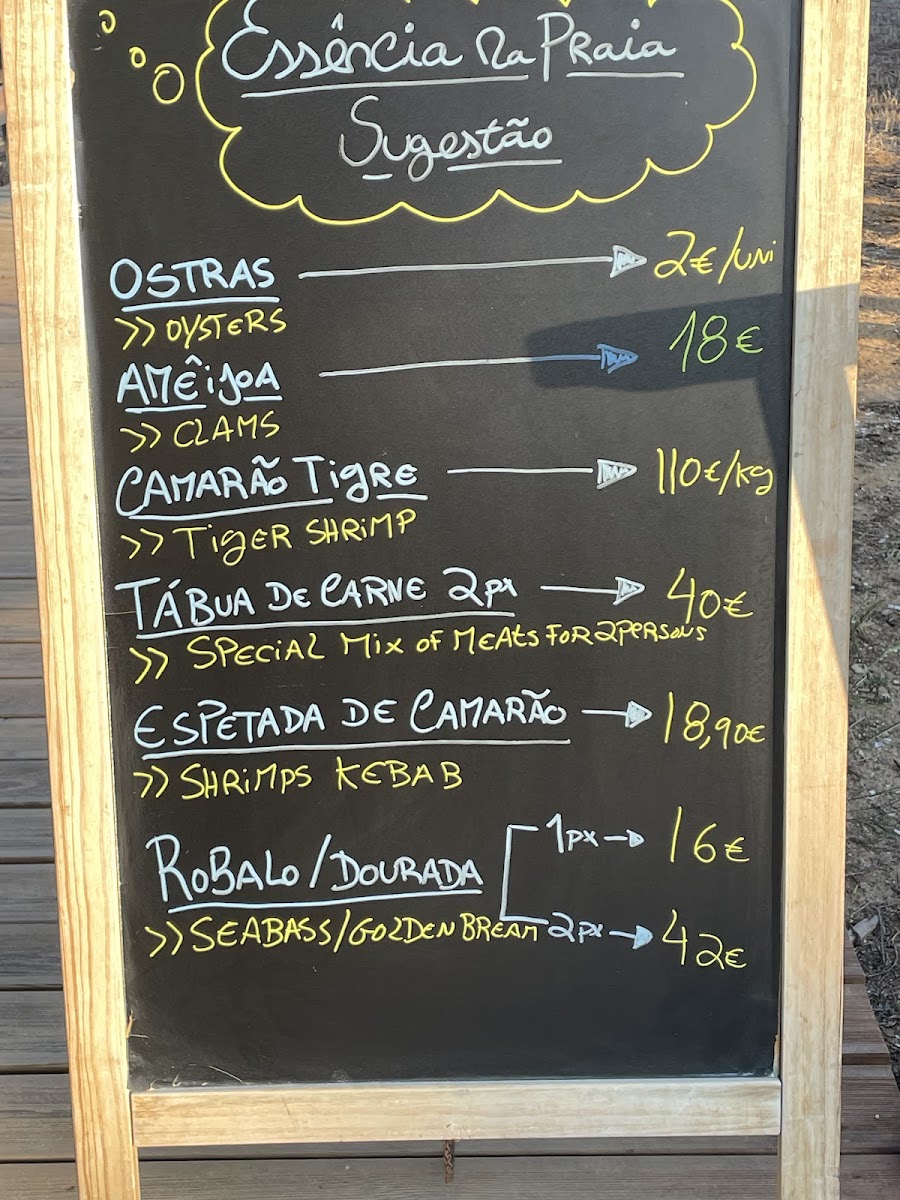 Essência na Praia
Sugestão
OSTRAS 2€/uni
>> OYSTERS
AMÊIJOA 18€
>> CLAMS
CAMARÃO TIGRE 110€/kg
>> TIGER SHRIMP
TÁBUA DE CARNE 2px 40€
>> SPECIAL MIX OF MEATS FOR 2 PERSONS
ESPETADA DE CAMARÃO 18,90€
>> SHRIMPS KEBAB
ROBALO/DOURADA 1px 16€
>> SEABASS/GOLDEN BREAM 2px 42€